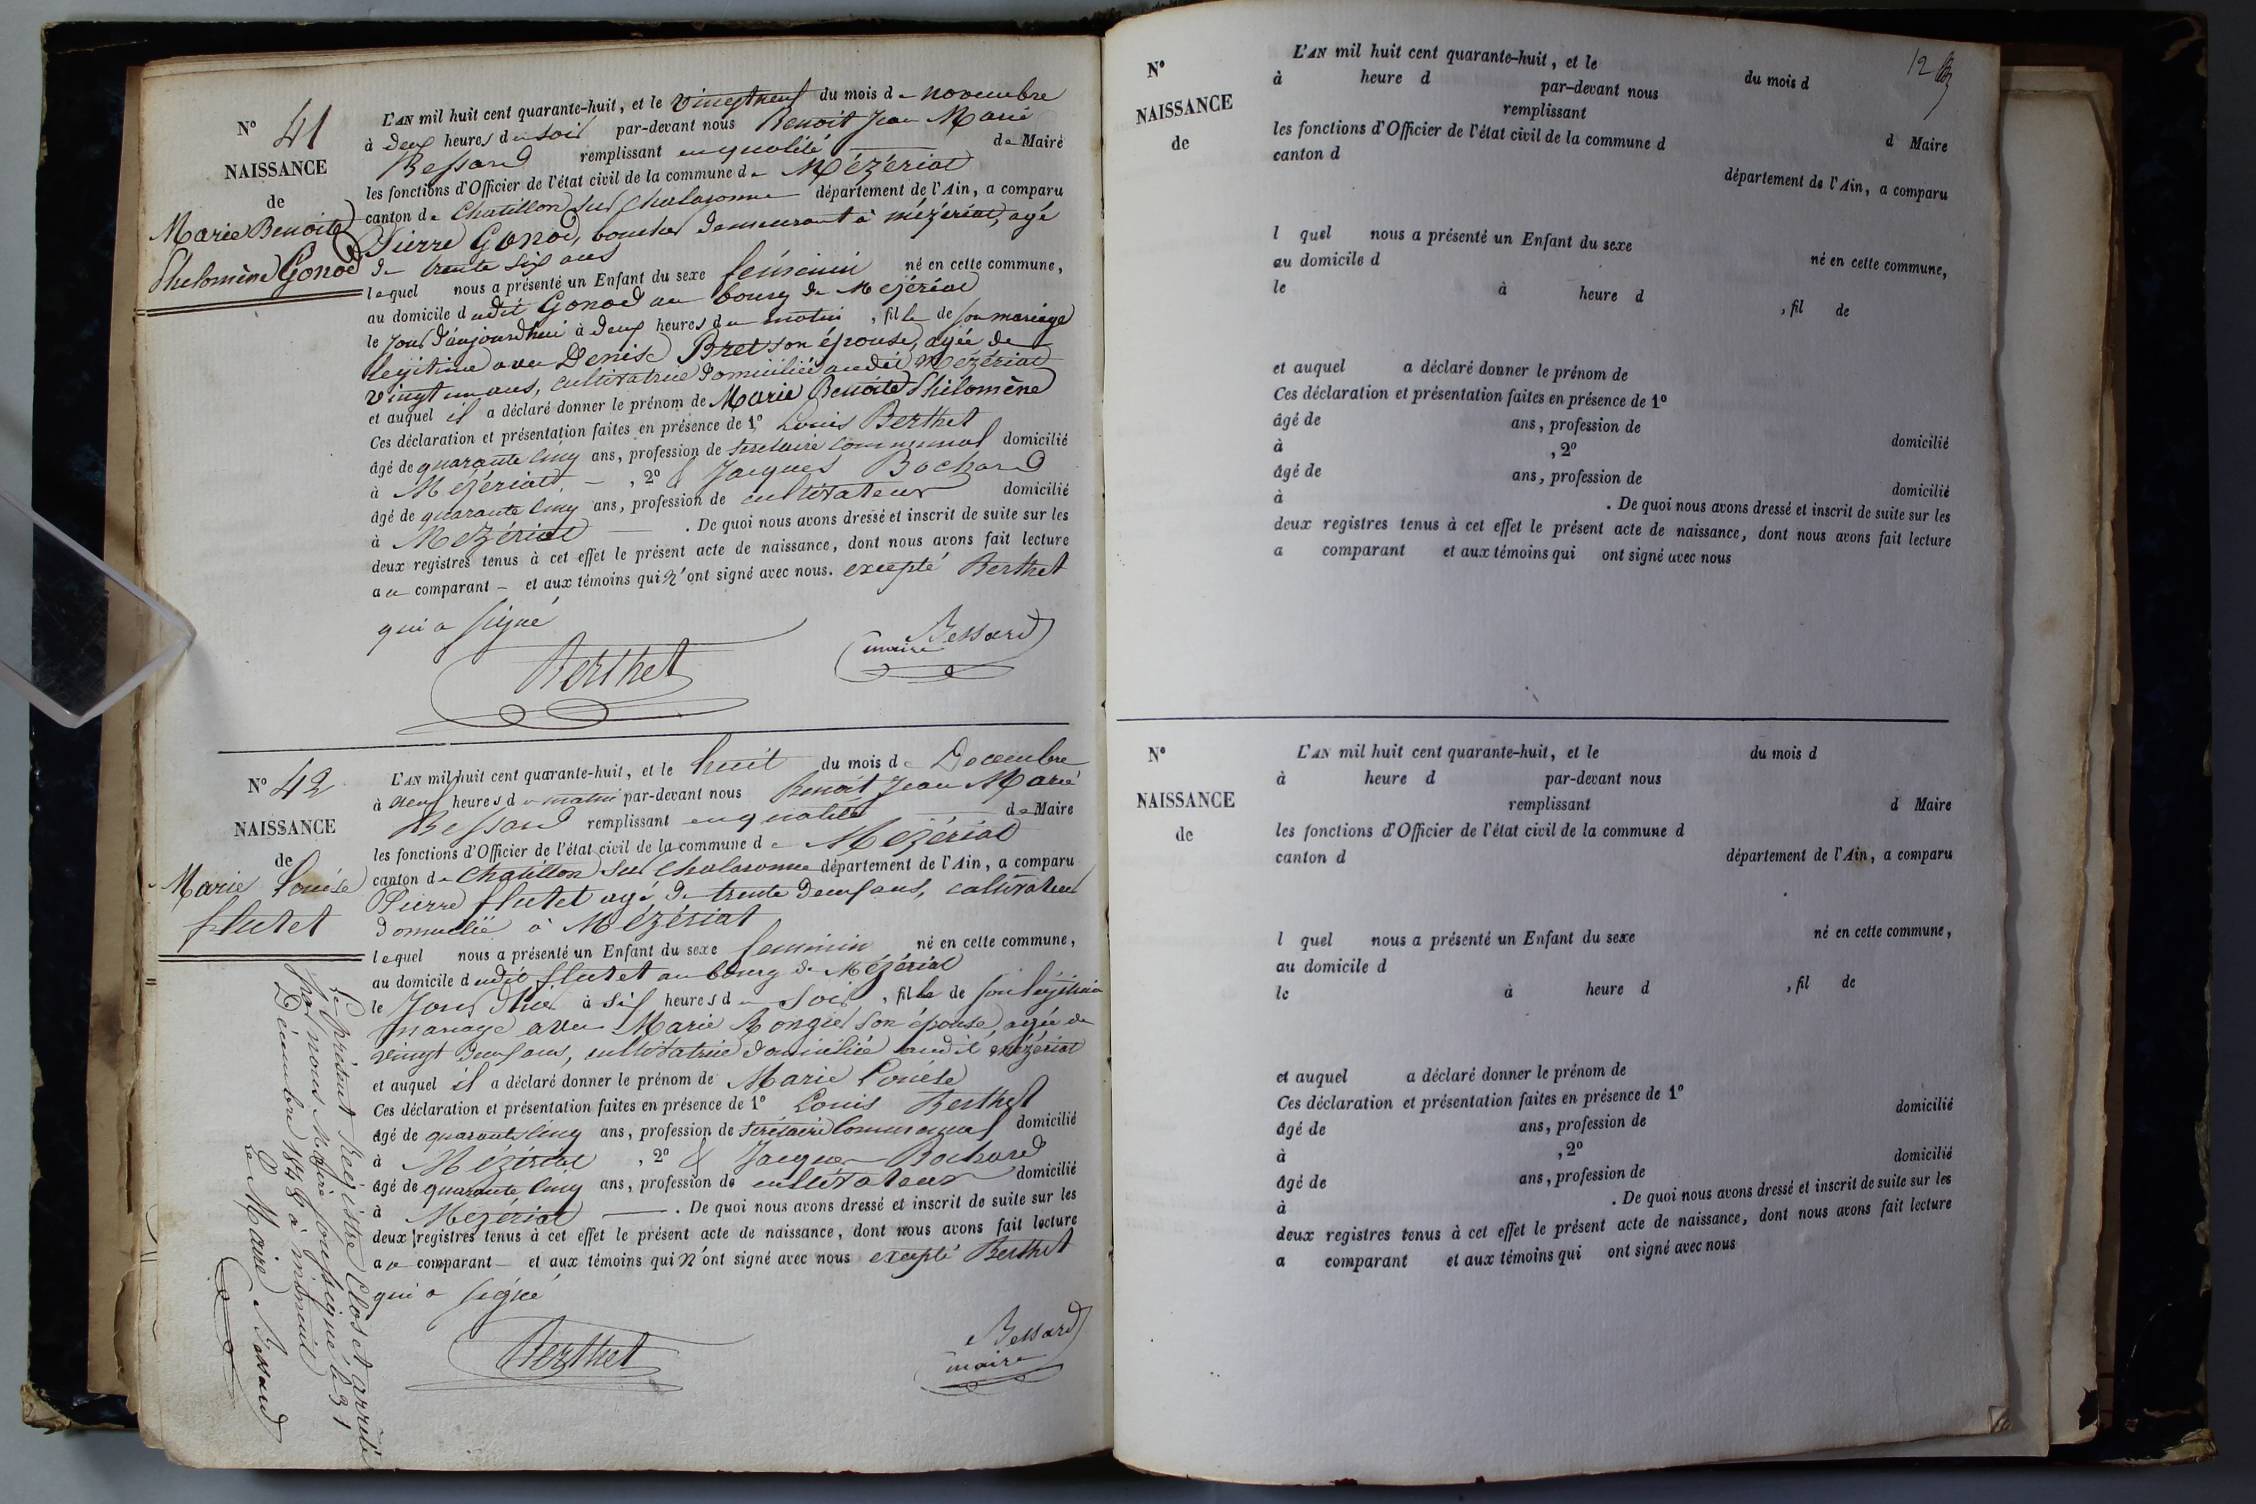 N° 41
NAISSANCE
de
Marie Benoite
Philomène Gonod
L'AN mil huit cent quarante-huit, et le vingt neuf du mois de novembre
à deux heures du soir par-devant nous Benoit Jean Marie
Bessard remplissant en qualité de Maire
les fonctions d'Officier de l'état civil de la commune de Mézériat
canton de Chatillon sur Chalaronne département de l'Ain, a comparu
Pierre Gonod, boucher demeurant à mézériat, agé
de trente six ans
lequel nous a présenté un Enfant du sexe féminin né en cette commune,
au domicile dudit Gonod au bourg de Mézériat
le jour d'aujourd'hui à deux heures du matin, fille de son mariage
légitime avec Denise Bret son épouse, agée de
vingt un ans, cultivatrice domiciliée audit Mézériat
et auquel il a déclaré donner le prénom de Marie Benoite Philomène
Ces déclaration et présentation faites en présence de 1° Louis Berthet
âgé de quarante cinq ans, profession de secrétaire communal domicilié
à Mézériat , 2° & Jacques Bochard
âgé de quarante cinq ans, profession de cultivateur domicilié
à Mézériat . De quoi nous avons dressé et inscrit de suite sur les
deux registres tenus à cet effet le présent acte de naissance, dont nous avons fait lecture
au comparant et aux témoins qui n'ont signé avec nous. excepté Berthet
qui a signé
Berthet
Bessard
maire
N° 42
NAISSANCE
de
Marie Louise
flutet
L'AN mil huit cent quarante-huit, et le huit du mois de Decembre
à neuf heures du matin par-devant nous Benoit Jean Marie
Bessard remplissant en qualité de Maire
les fonctions d'Officier de l'état civil de la commune de Mézériat
canton de Chatillon sur Chalaronne département de l'Ain, a comparu
Pierre flutet agé de trente deux ans, cultivateur
domicilié à Mézériat
lequel nous a présenté un Enfant du sexe feminin né en cette commune,
au domicile dudit flutet au bourg de Mézériat
le jour d'hier à six heures du soir, fille de son légitime
mariage avec Marie Rongier son épouse, agée de
vingt deux ans, cultivatrice domiciliée audit mézériat
et auquel il a déclaré donner le prénom de Marie Louise
Ces déclaration et présentation faites en présence de 1° Louis Berthet
âgé de quarante cinq ans, profession de secrétaire Communal domicilié
à Mézériat , 2° & Jacques Bochard
âgé de quarante cinq ans, profession de cultivateur domicilié
à Mézériat . De quoi nous avons dressé et inscrit de suite sur les
deux registres tenus à cet effet le présent acte de naissance, dont nous avons fait lecture
au comparant et aux témoins qui n'ont signé avec nous excepté Berthet
qui a signé
Berthet
Bessard
maire
Le présent Registre Clos et arrêté
par nous Maire soussigné le 31
Décembre 1848 à minuit
Le Maire Bessard
12
N°
NAISSANCE
de
L'AN mil huit cent quarante-huit, et le du mois d
à heure d par-devant nous
remplissant d Maire
les fonctions d'Officier de l'état civil de la commune d
canton d département de l'Ain, a comparu
l quel nous a présenté un Enfant du sexe né en cette commune,
au domicile d
le à heure d , fil de
et auquel a déclaré donner le prénom de
Ces déclaration et présentation faites en présence de 1°
âgé de ans, profession de domicilié
à , 2°
âgé de ans, profession de domicilié
à . De quoi nous avons dressé et inscrit de suite sur les
deux registres tenus à cet effet le présent acte de naissance, dont nous avons fait lecture
a comparant et aux témoins qui ont signé avec nous
N°
NAISSANCE
de
L'AN mil huit cent quarante-huit, et le du mois d
à heure d par-devant nous
remplissant d Maire
les fonctions d'Officier de l'état civil de la commune d
canton d département de l'Ain, a comparu
l quel nous a présenté un Enfant du sexe né en cette commune,
au domicile d
le à heure d , fil de
et auquel a déclaré donner le prénom de
Ces déclaration et présentation faites en présence de 1°
âgé de ans, profession de domicilié
à , 2°
âgé de ans, profession de domicilié
à . De quoi nous avons dressé et inscrit de suite sur les
deux registres tenus à cet effet le présent acte de naissance, dont nous avons fait lecture
a comparant et aux témoins qui ont signé avec nous